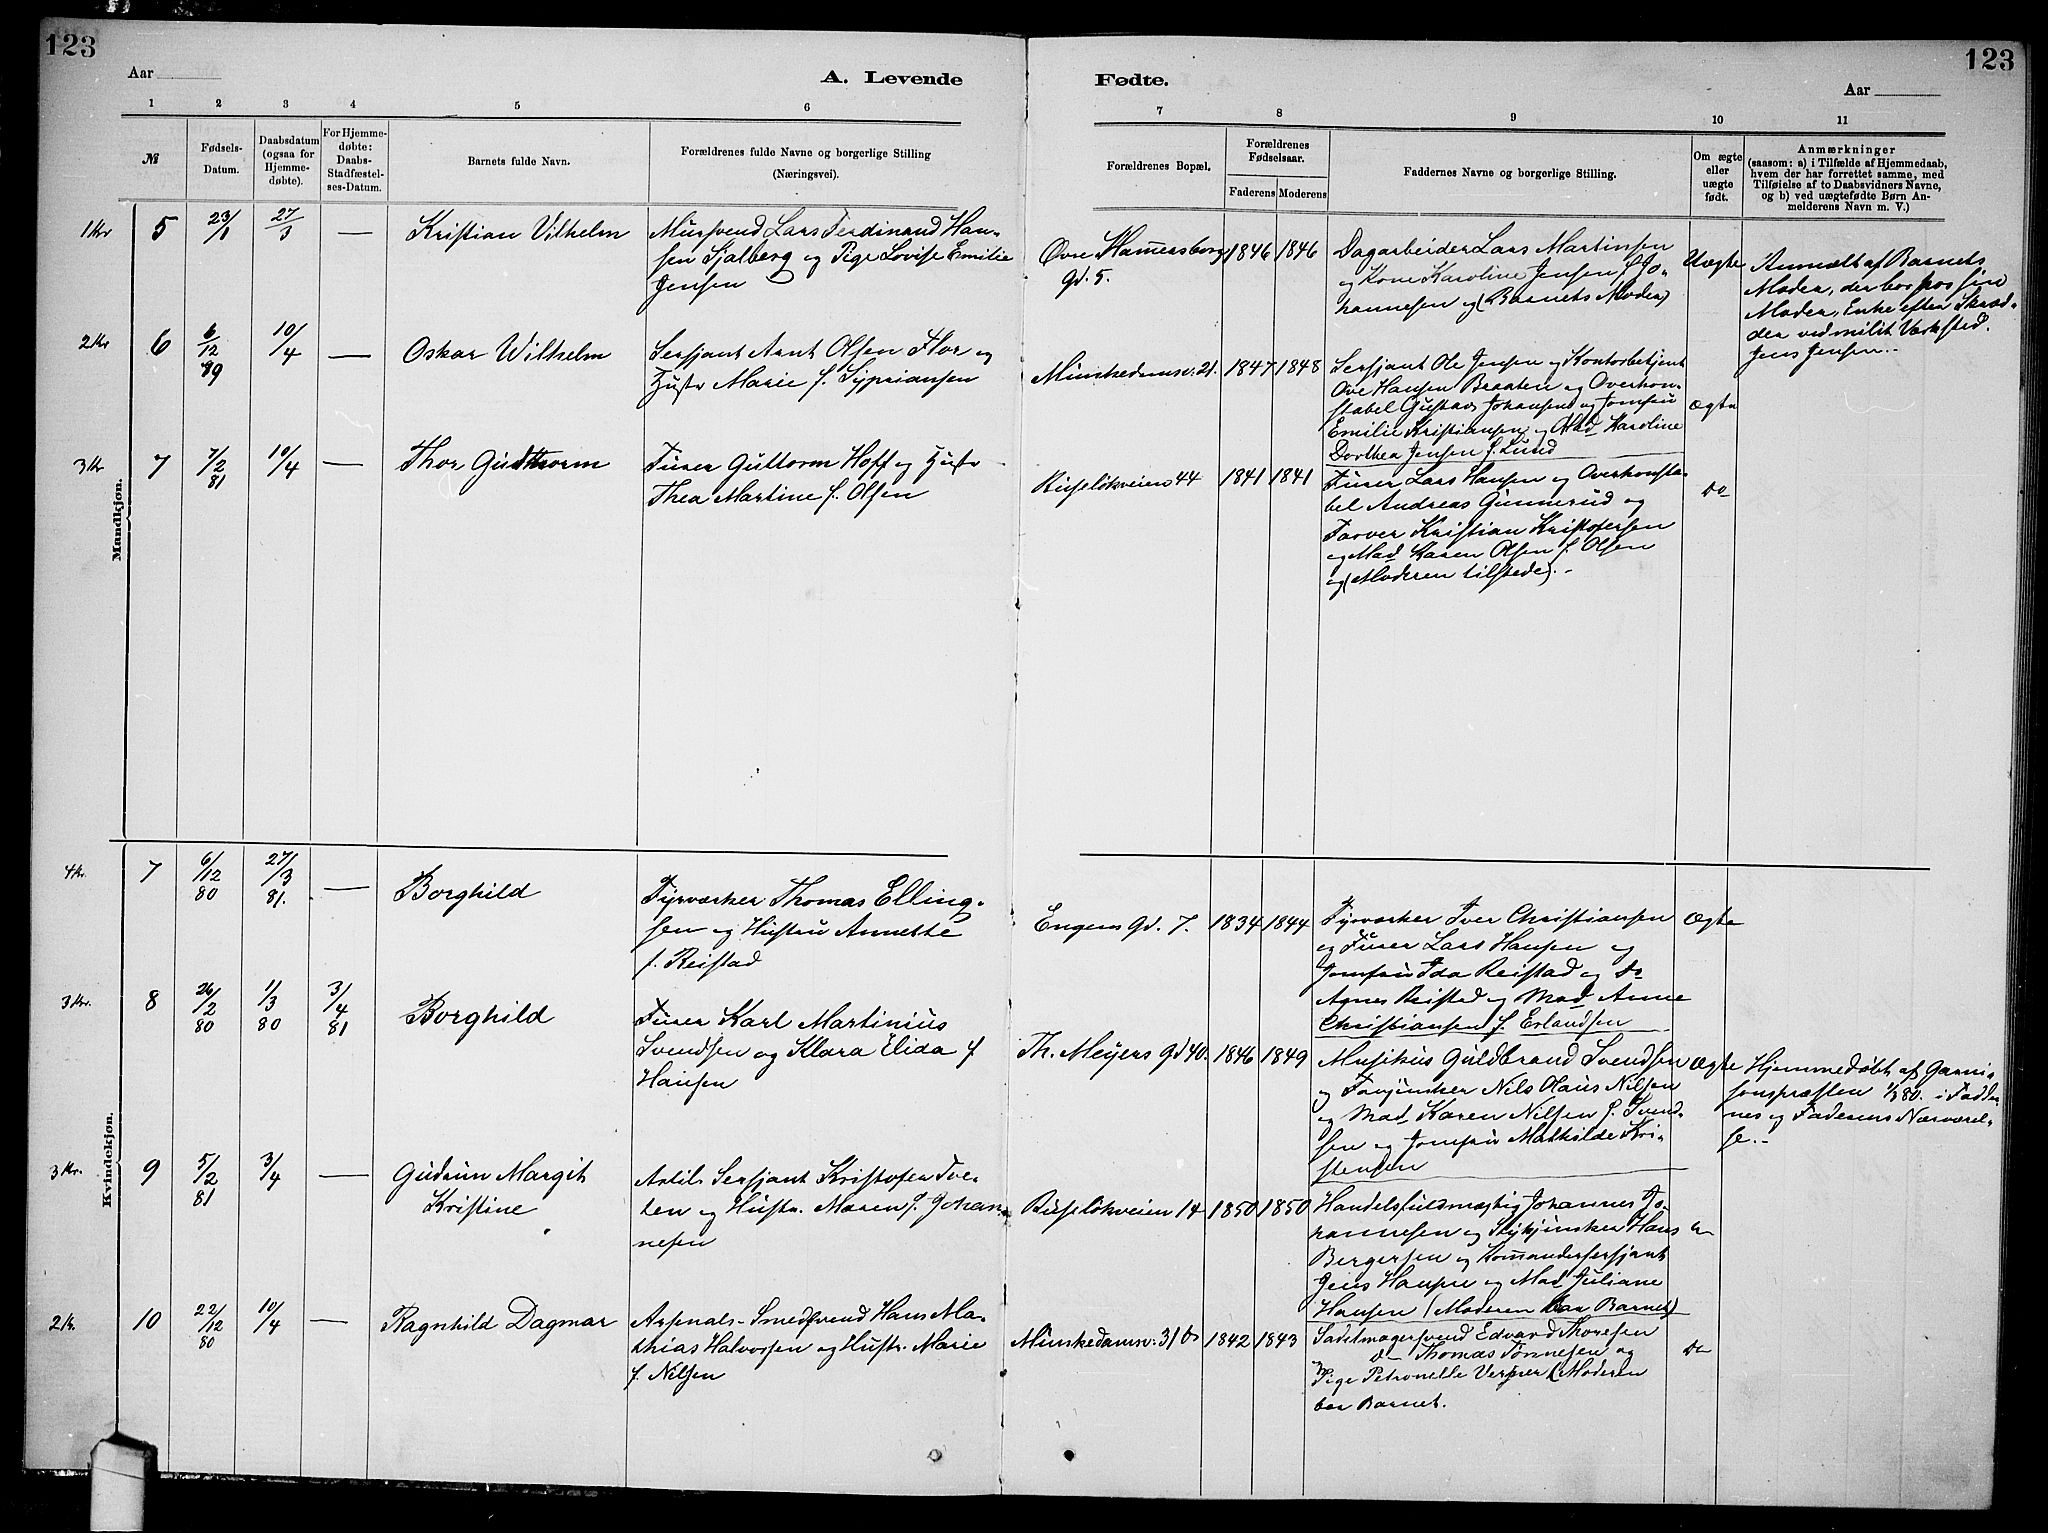 123
123
Aar
A. Levende
Fødte.
Aar
1 2 3 4 5 6 7 8 9 10 11
№
Fødsels-
Datum.
Daabsdatum
(ogsaa for
Hjemme-
døbte).
For Hjemme-
døbte:
Daabs-
Stadfæstel-
ses-Datum.
Barnets fulde Navn.
Forældrenes fulde Navne og borgerlige Stilling
(Næringsvei).
Forældrenes Bopæl.
Forældrenes
Fødselsaar.
Faderens Moderens
Faddernes Navne og borgerlige Stilling.
Om ægte
eller
uægte
født.
Anmærkninger
(saasom: a) i Tilfælde af Hjemmedaab,
hvem der har forrettet samme, med
Tilføielse af to Daabsvidners Navne,
og b) ved uægtefødte Børn An-
melderens Navn m. V.)
Mandkjøn.
1 Kr 5 23/1 27/3 — Kristian Vilhelm
Mursvend Lars Ferdinand Han-
sen Sjølberg og Pige Lovise Emilie
Jensen
Øvre Hamersborg
Gd. 5.
1846 1846
Dagarbeider Lars Martinsen
og Kone Karoline Jensen f. Jo-
hannesen og (Barnets Moder)
Uægte
Anmeldt af Barnets
Moder, der bor hos sin
Moder, Enke efter Skræd-
der ved milit. Værksted.
Jens Jensen.-
2 Kr 6 6/12 89 10/4 — Oskar Wilhelm
Sersjant Arnt Olsen Flor og
Hustr Marie f. Sypriansen
Munkedamsv. 21. 1847 1848
Sersjant Ole Jensen og Kontorbetjent
Ove Hansen Braaten og Overkon-
stabel Gustav Johansen og Jomfru
Emilie Kristiansen og Mad Karoline
Dorthea Jensen f. Lund
Ægte
3 Kr 7 7/2 81 10/4 — Thor Gudthorm
Furer Guttorm Hoff og Hustr
Thea Martine f. Olsen
Ruseløkveien 44 1841 1841
Furer Lars Hansen og Overkonsta-
bel Andreas Gunnerud og
Farver Kristian Kristofersen
og Mad Karen Olsen f. Olsen
og (Moderen tilstede).-
Do
Kvindekjøn.
4 Kr. 7 6/12 80 27/3 81. — Borghild
Fyrværker Thomas Elling-
sen og Hustru Annette
f. Reistad
Engens Gd. 7. 1834 1844
Fyrværker Iver Christiansen
og Furer Lars Hansen og
Jomfru Ida Reistad og Do
Agnes Reistad og Mad Anne
Christiansen f. Erlandsen
Ægte
3 Kr. 8 26/2 80 1/3 80 3/4 81 Borghild
Furer Karl Martinius
Svendsen og Klara Elida f.
Hansen
Th. Meyers Gd 40. 1846 1849
Musikus Guldbrand Svendsen
og Favjunker Nils Olaus Nilsen
og Mad Karen Nilsen f. Svend-
sen og Jomfru Mathilde Kri-
stensen
Ægte
Hjemmedøbt af Garni-
sonspræsten 1/3 80. i Fadder-
nes og Faderens Nærværel-
se.-
3 Kr. 9 5/2 81 3/4 — Gudrun Margit
Kristine
Artil- Sersjant Kristofer Tve-
ten og Hustr. Maren f. Johan-
nesen
Ruseløkveien 14 1850 1850
Handelsfuldmægtig Johannes Jo-
hannesen og Stykjunker Hans
Bergersen og Komandersersjant
Jens Hansen og Mad Juliane
Hansen (Moderen bar Barnet)
2 Kr. 10 22/12 80 10/4 — Ragnhild Dagmar
Arsenals-Smedsvend Hans Ma-
thias Halvorsen og Hustr. Marie
f. Nilsen
Munkedamsv: 31 b 1842 1843
Sadelmagersvend Edvard Thoresen
Do Thomas Tønnesen og
Pige Petronelle Verpner (Moderen
bar Barnet.
Do